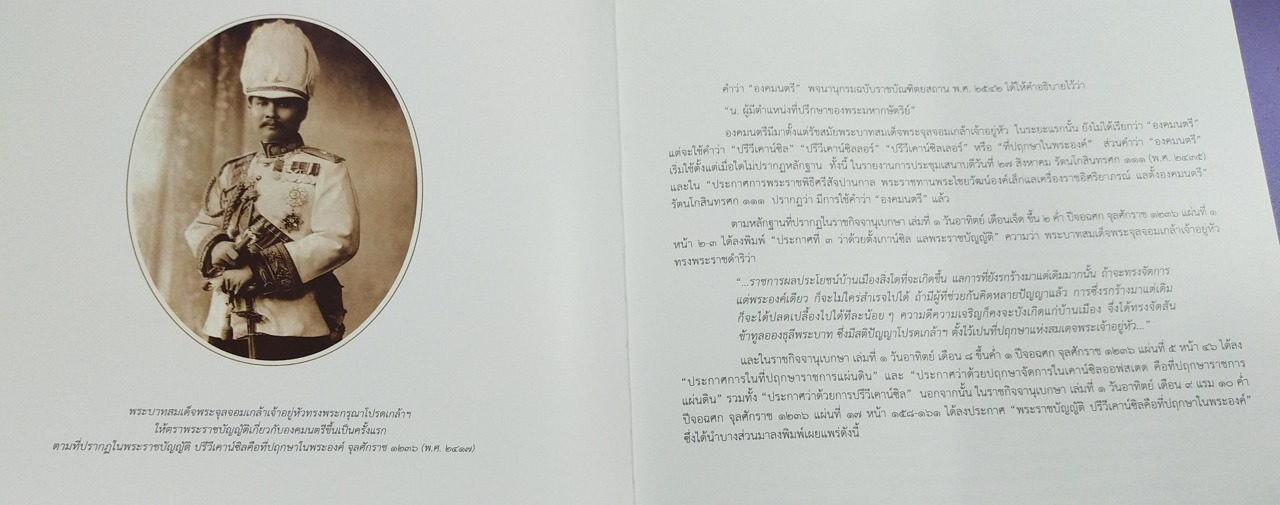 พระบาทสมเด็จพระจุลจอมเกล้าเจ้าอยู่หัวทรงพระกรุณาโปรดเกล้าฯ
ให้ตราพระราชบัญญัติเกี่ยวกับองคมนตรีขึ้นเป็นครั้งแรก
ตามที่ปรากฏในพระราชบัญญัติ ปรีวีเคาน์ซิลคือที่ปฤกษาในพระองค์ จุลศักราช ๑๒๓๖ (พ.ศ. ๒๔๑๗)
คำว่า “องคมนตรี” พจนานุกรมฉบับราชบัณฑิตยสถาน พ.ศ. ๒๕๔๒ ได้ให้คำอธิบายไว้ว่า
“น. ผู้มีตำแหน่งที่ปรึกษาของพระมหากษัตริย์”
องคมนตรีมีมาตั้งแต่รัชสมัยพระบาทสมเด็จพระจุลจอมเกล้าเจ้าอยู่หัว ในระยะแรกนั้น ยังไม่ได้เรียกว่า “องคมนตรี”
แต่จะใช้คำว่า “ปรีวีเคาน์ซิล” “ปรีวีเคาน์ซิลลอร์” “ปรีวีเคาน์ซิลเลอร์” หรือ “ที่ปฤกษาในพระองค์” ส่วนคำว่า “องคมนตรี”
เริ่มใช้ตั้งแต่เมื่อใดไม่ปรากฏหลักฐาน ทั้งนี้ ในรายงานการประชุมเสนาบดีวันที่ ๒๗ สิงหาคม รัตนโกสินทรศก ๑๑๑ (พ.ศ. ๒๔๓๕)
และใน “ประกาศการพระราชพิธีศรีสัจปานกาล พระราชทานพระไชยวัฒน์องค์เล็กแลเครื่องราชอิศริยาภรณ์ แลตั้งองคมนตรี”
รัตนโกสินทรศก ๑๑๑ ปรากฏว่า มีการใช้คำว่า “องคมนตรี” แล้ว
ตามหลักฐานที่ปรากฏในราชกิจจานุเบกษา เล่มที่ ๑ วันอาทิตย์ เดือนเจ็ด ขึ้น ๒ ค่ำ ปีจอฉศก จุลศักราช ๑๒๓๖ แผ่นที่ ๑
หน้า ๒-๓ ได้ลงพิมพ์ “ประกาศที่ ๓ ว่าด้วยตั้งเกาน์ซิล แลพระราชบัญญัติ” ความว่า พระบาทสมเด็จพระจุลจอมเกล้าเจ้าอยู่หัว
ทรงพระราชดำริว่า
“...ราชการผลประโยชน์บ้านเมืองสิ่งใดที่จะเกิดขึ้น แลการที่ยังรกร้างมาแต่เดิมมากนั้น ถ้าจะทรงจัดการ
แต่พระองค์เดียว ก็จะไม่ใคร่สำเรจไปได้ ถ้ามีผู้ที่ช่วยกันคิดหลายปัญญาแล้ว การซึ่งรกร้างมาแต่เดิม
ก็จะได้ปลดเปลื้องไปได้ทีละน้อย ๆ ความดีความเจริญก็คงจะบังเกิดแก่บ้านเมือง จึ่งได้ทรงจัดสัน
ข้าทูลอองธุลีพระบาท ซึ่งมีสติปัญญาโปรดเกล้าฯ ตั้งไว้เปนที่ปฤกษาแห่งสมเดจพระเจ้าอยู่หัว...”
และในราชกิจจานุเบกษา เล่มที่ ๑ วันอาทิตย์ เดือน ๘ ขึ้นค่ำ ๑ ปีจอฉศก จุลศักราช ๑๒๓๖ แผ่นที่ ๕ หน้า ๔๖ ได้ลง
“ประกาศการในที่ปฤกษาราชการแผ่นดิน” และ “ประกาศว่าด้วยปฤกษาจัดการในเคาน์ซิลออฟสเตต คือที่ปฤกษาราชการ
แผ่นดิน” รวมทั้ง “ประกาศว่าด้วยการปรีวีเคาน์ซิล” นอกจากนั้น ในราชกิจจานุเบกษา เล่มที่ ๑ วันอาทิตย์ เดือน ๙ แรม ๑๐ ค่ำ
ปีจอฉศก จุลศักราช ๑๒๓๖ แผ่นที่ ๑๗ หน้า ๑๕๘-๑๖๑ ได้ลงประกาศ “พระราชบัญญัติ ปรีวีเคาน์ซิลคือที่ปฤกษาในพระองค์”
ซึ่งได้นำบางส่วนมาลงพิมพ์เผยแพร่ดังนี้